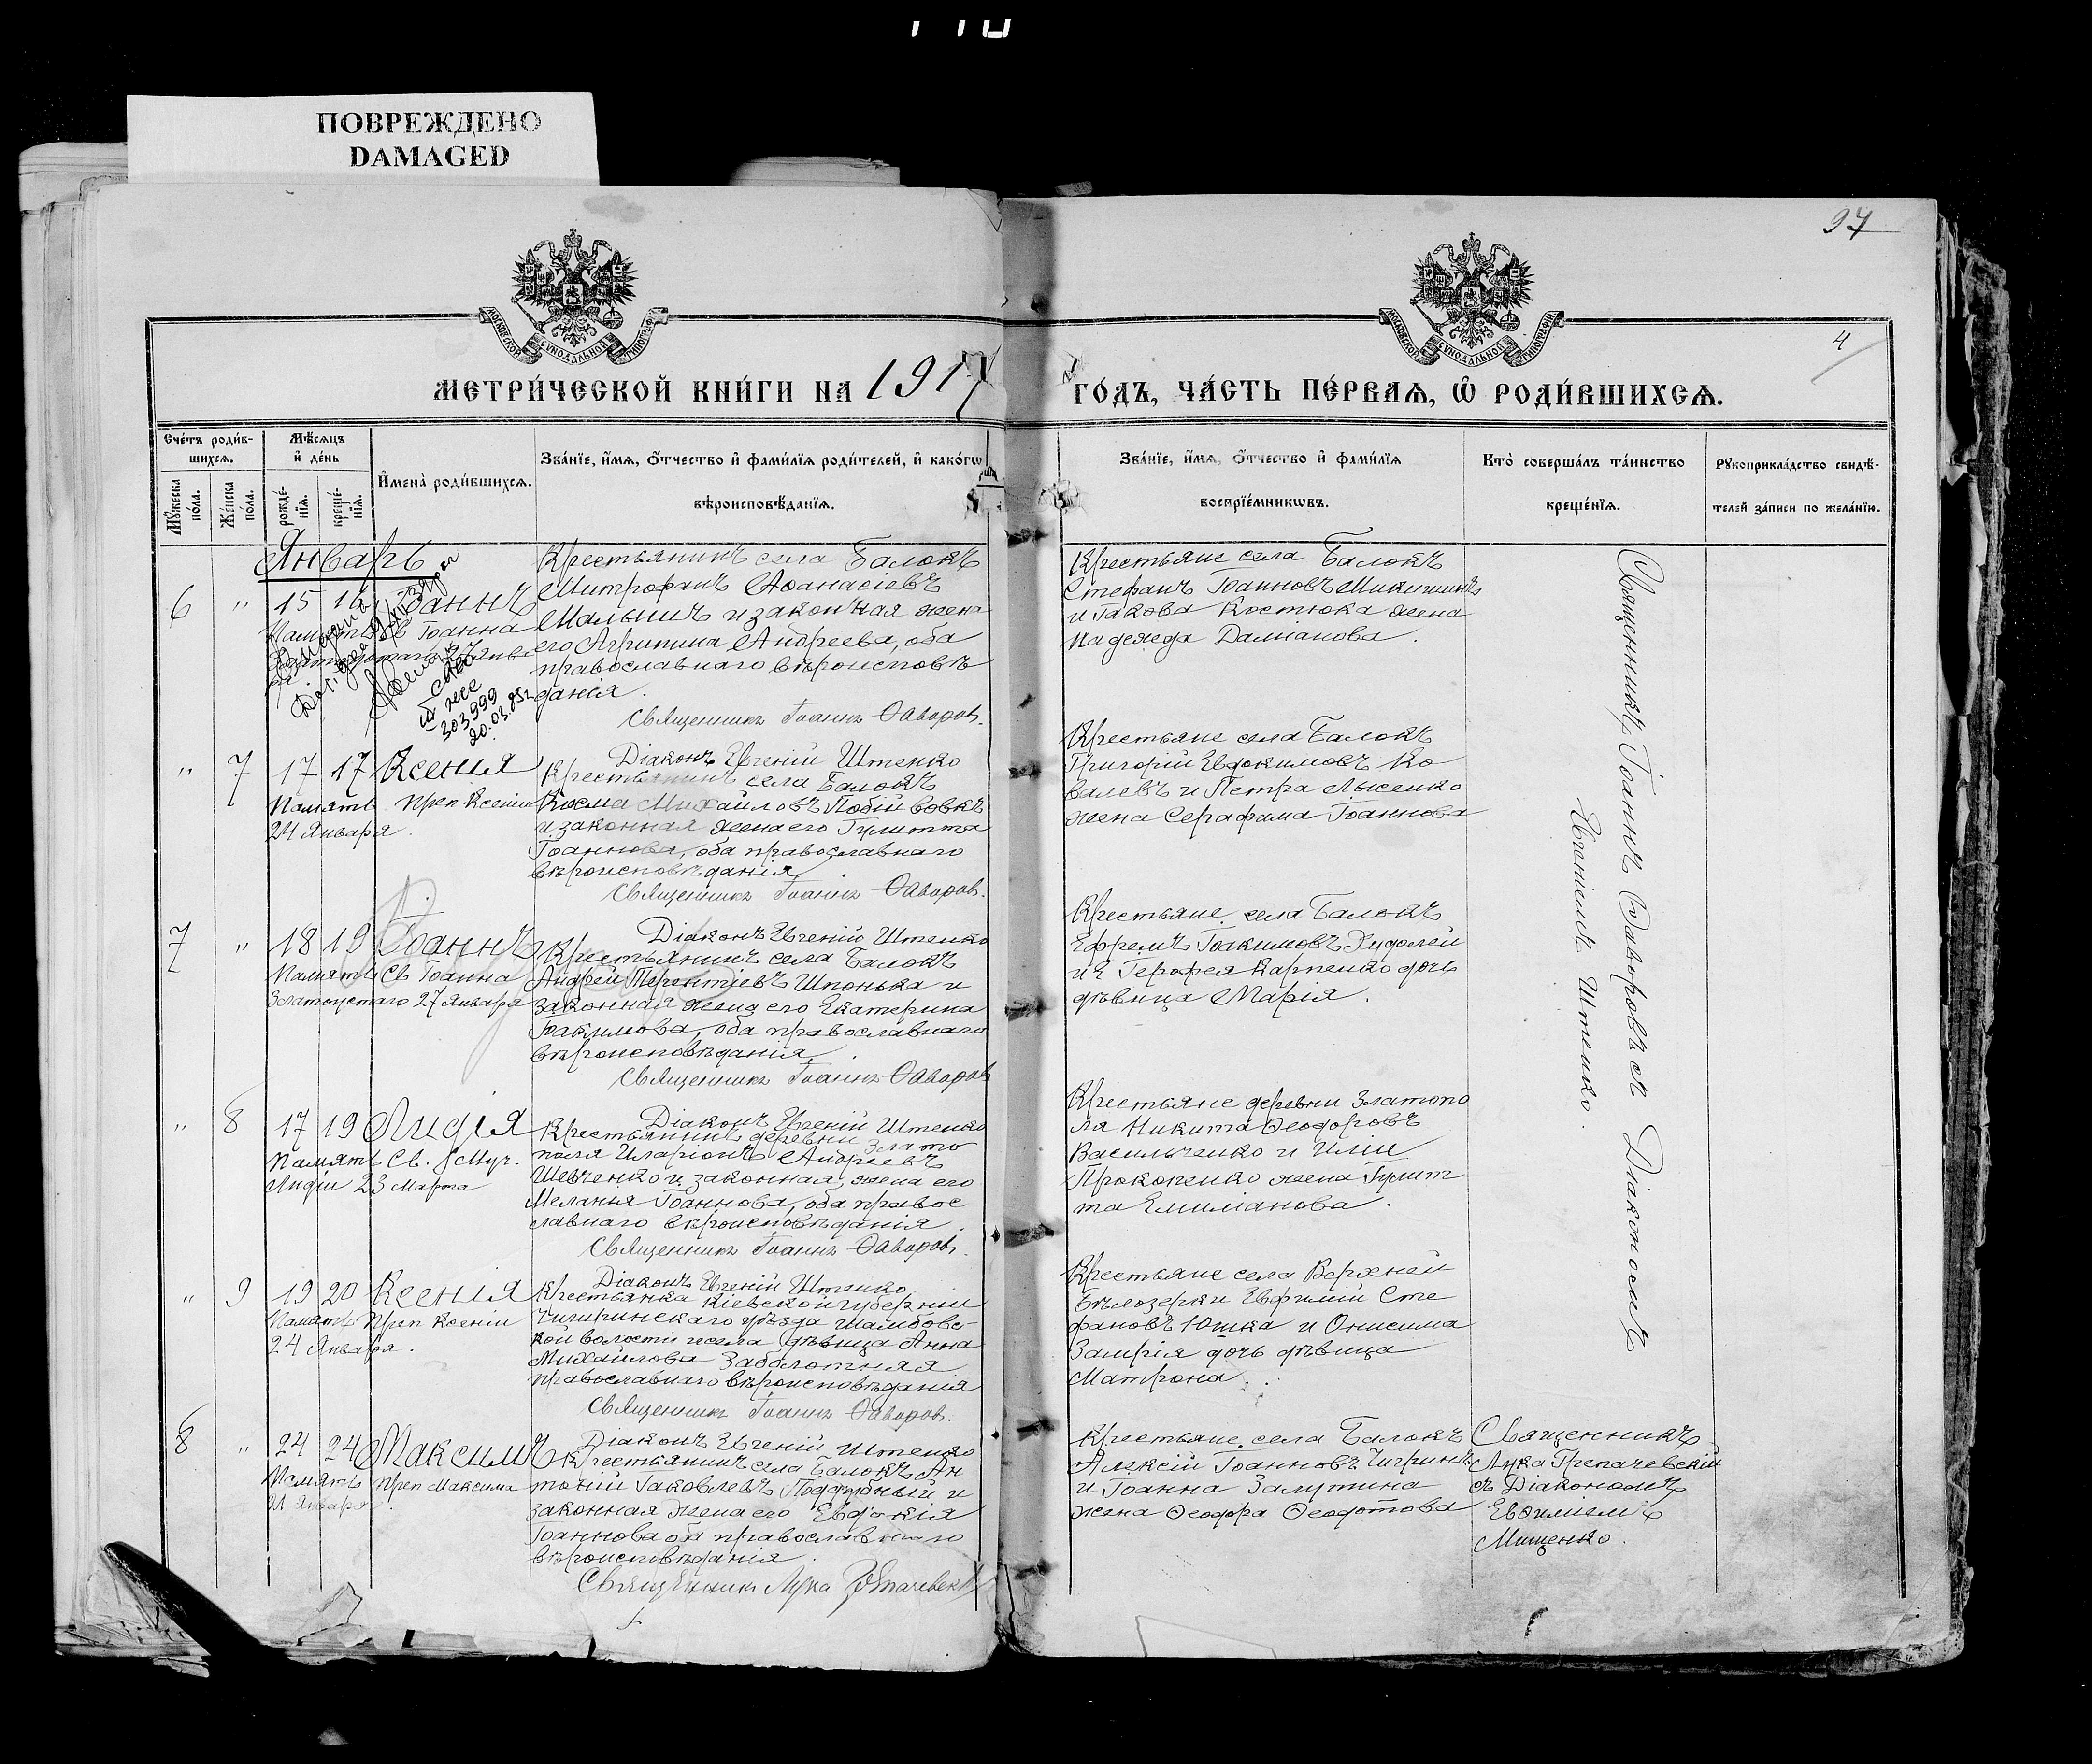 ПОВРЕЖДЕНО
DAMAGED
97
4
МОСКОВСКОЙ СѴНОДАЛЬНОЙ ТИПОГРАФІИ
МОСКОВСКОЙ СѴНОДАЛЬНОЙ ТИПОГРАФІИ
МЕТРИ́ЧЕСКОЙ КНИ́ГИ НА 1917
ГО́ДЪ, ЧА́СТЬ ПЕ́РВАѦ, Ѿ РОДИ́ВШИХСѦ.
Сче́тъ роди́в-
шихсѧ.
Мѣ́сѧцъ
и҆ де́нь
Мꙋ́жеска по́ла.
Же́нска по́ла.
рожде́-
нїѧ.
креще́-
нїѧ.
И҆мена̀ роди́вшихсѧ.
Зва́нїе, и҆́мѧ, ѻ҆́тчество и҆ фами́лїѧ роди́телей, и҆ како́гѡ
вѣроисповѣ́данїѧ.
Зва́нїе, и҆́мѧ, ѻ҆́тчество и҆ фами́лїѧ
воспрїе́мникѡвъ.
Кто̀ соверша́лъ та́инство
креще́нїѧ.
Рꙋкоприкла́дство свидѣ́-
телей за́писи по жела́нїю.
Январь
6 " 15 16 Іоаннъ
Память Св Іоанна
303999
20.03.85г
Крестьянинъ села Балокъ
Митрофанъ Аѳанасіевъ
Малышъ и законная жена
его Агрипина Андреева, оба
православнаго вѣроисповѣ
данія.
Священникъ Іоаннъ Ѳаворовъ.
Діаконъ Евгеній Штенко
Крестьяне села Балокъ
Стефанъ Іоанновъ
и Іакова Костюка жена
Надежда Даміанова.
" 7 17 17 Ксенія
Память Преп Ксеніи
24 Января.
Крестьянинъ села Балокъ
Косма Михайловъ Побійвовкъ
и законная жена его Гулитта
Іоаннова, оба православнаго
вѣроисповѣданія.
Священникъ Іоаннъ Ѳаворовъ.
Діаконъ Евгеній Штенко
Крестьяне села Балокъ
Григорій Евдокимовъ Ко
валевъ и Петра Лысенко
жена Серафима Іоаннова
7 " 18 19 Іоаннъ
Память Св Іоанна
Златоустаго 27 Января
Крестьянинъ села Балокъ
Андрей Терентіевъ Шпонька и
законная жена его Екатерина
Іоакимова, оба православнаго
вѣроисповѣданія.
Священникъ Іоаннъ Ѳаворовъ
Діаконъ Евгеній Штенко
Крестьяне села Балокъ
Ефремъ Іоакимовъ
и Іерофея Карпенко дочь
дѣвица Марія.
" 8 17 19 Лидія
Память Св. Муч.
Лидіи 23 Марта
Крестьянинъ деревни Злато
поля Иларіонъ Андреевъ
Шевченко и законная жена его
Меланія Іоаннова, оба правос
лавнаго вѣроисповѣданія.
Священникъ Іоаннъ Ѳаворовъ.
Діаконъ Евгеній Штенко
Крестьяне деревни Златопо
ля Никита Ѳеодоровъ
Васильченко и Иліи
Прокопенко жена Гулит
та Емиліанова.
" 9 19 20 Ксенія
Память Преп Ксеніи
24 Января.
Крестьянка Кіевской губерніи
Чигиринскаго уѣзда Шамбовс-
кой волости и села дѣвица Анна
Михайлова Заболотняя
православнаго вѣроисповѣданія
Священникъ Іоаннъ Ѳаворовъ.
Діаконъ Евгеній Штенко
Крестьяне села Верхней
Бѣлозерки Евфимій Сте
фановъ Юшка и Онисима
дочь дѣвица
Матрона.
8 " 24 24 Максимъ
Память Преп Максима
21 Января.
Крестьянинъ села Балокъ Ан
тоній Іаковлевъ Поддубный и
законная жена его Евдокія
Іоаннова оба православнаго
вѣроисповѣданія.
Священникъ Лука
Крестьяне села Балокъ
Алексій Іоанновъ Чигринъ
и Іоанна Залутина
жена Ѳеодора Ѳеодотова
Священникъ Іоаннъ Ѳаворовъ съ Діакономъ
Евгеніемъ Штенко.
Священникъ
Лука
съ Діакономъ
Евѳиміемъ
Мищенко.